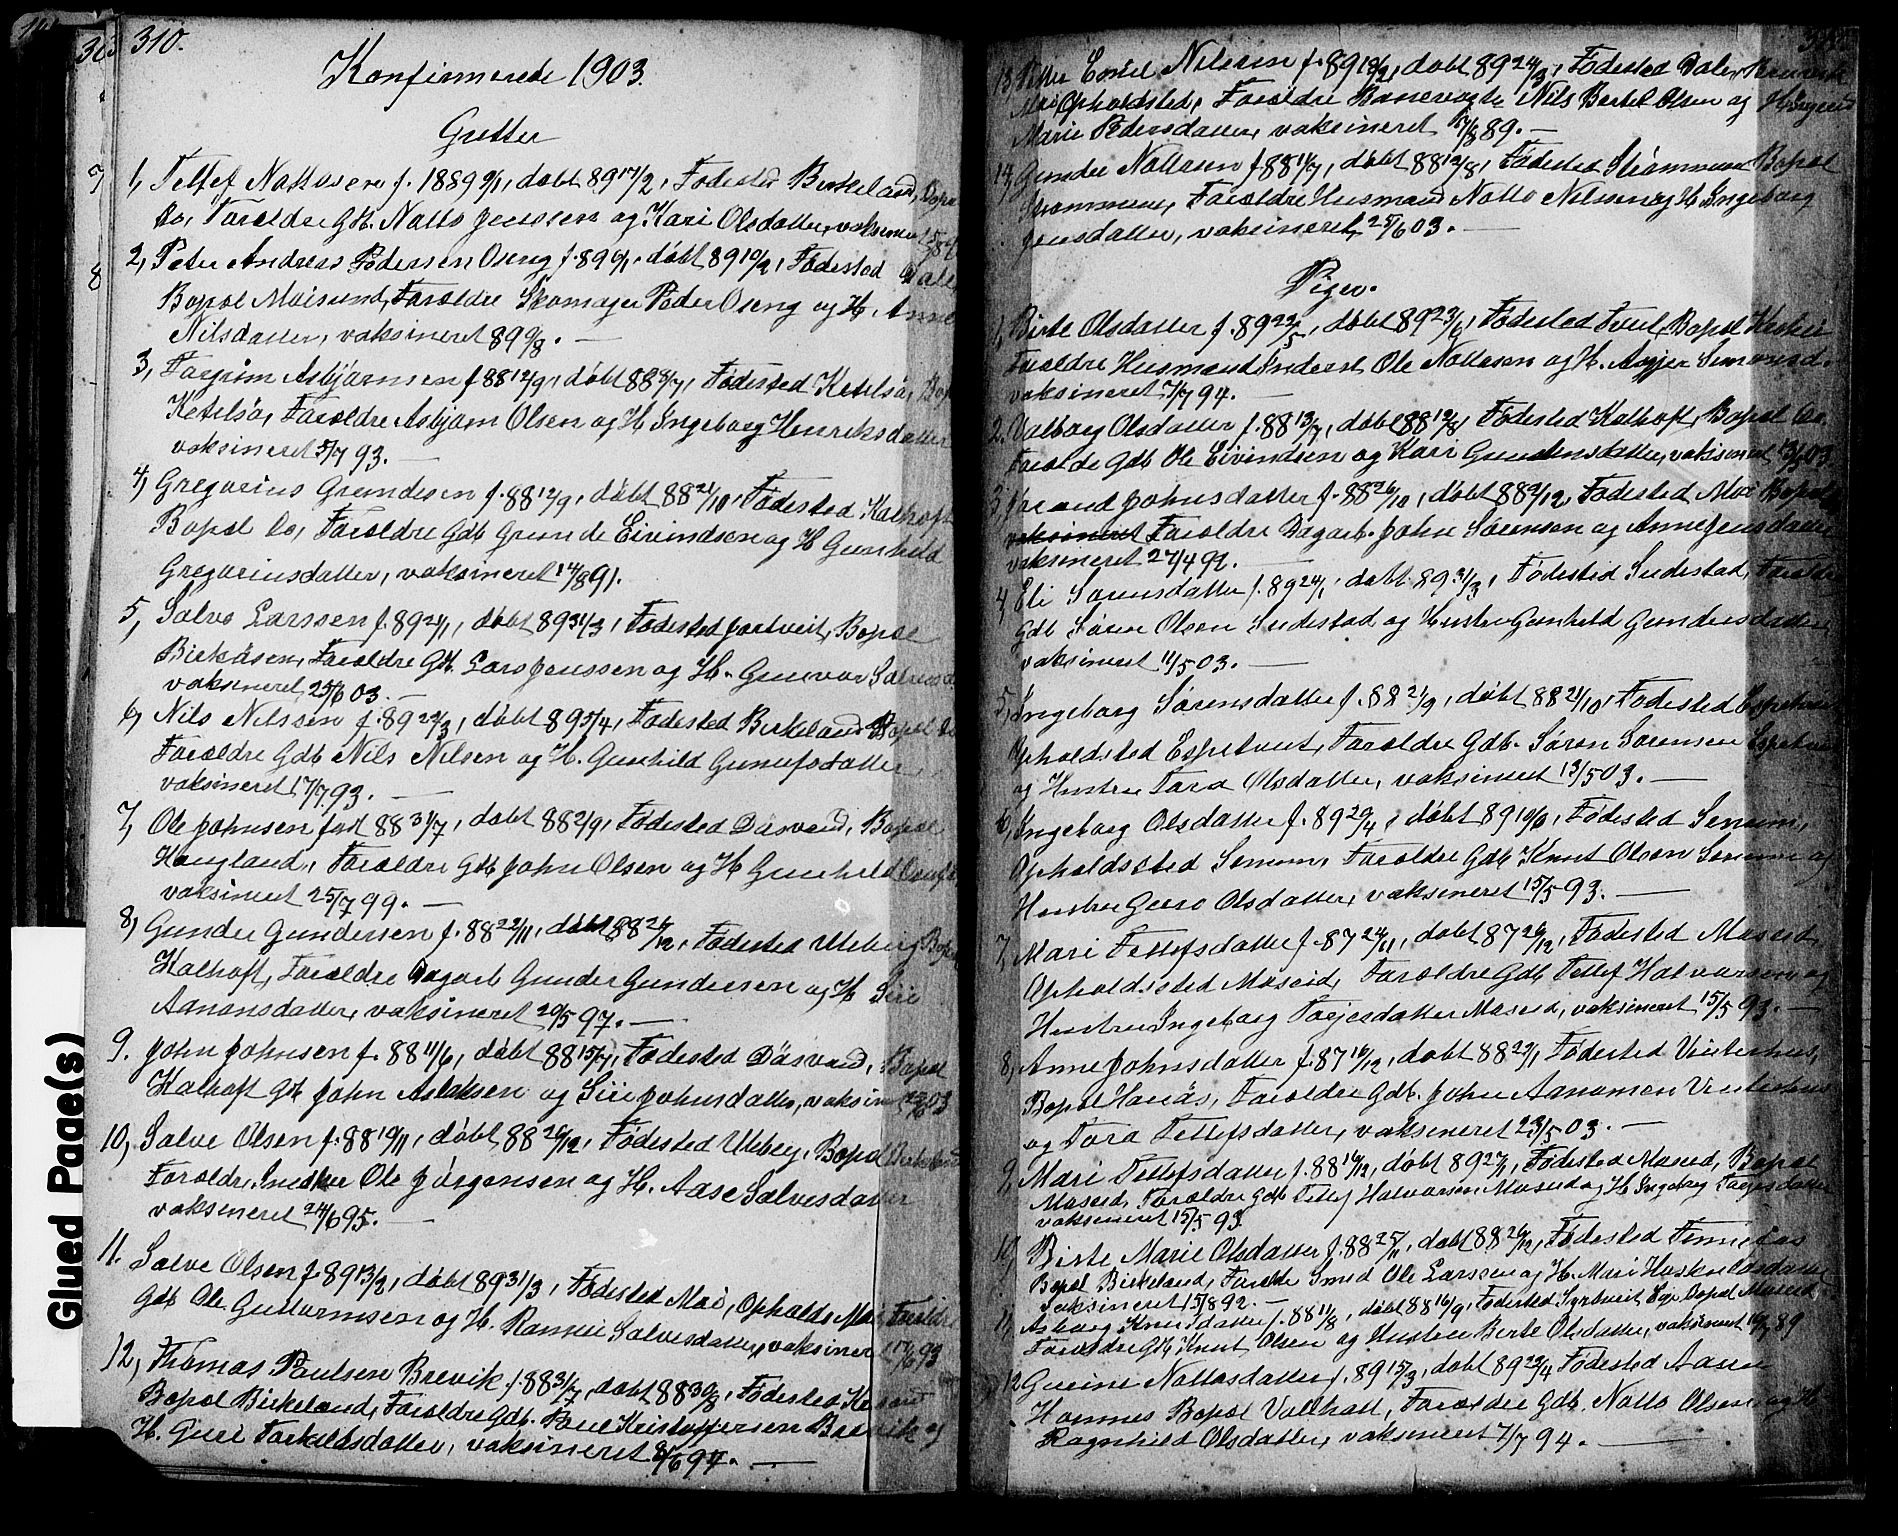 310.
Konfirmerede 1903.
Gutter
1, Tellef Nattosen f. 1889 9/1, døbt 89 17/2, Fødested Birkeland, Bopæl
Do, Forældre Gb. Natto Jenssen og Kari Olsdatter, vaksineret
2, Peter Andreas Pedersen Oseng f. 89 6/1, døbt 89 10/2, Fødested Dale
Bopæl Moisund, Forældre Skomager Peder Oseng og H. Anne
Nilsdatter, vaksineret 89 9/8. —
3, Torgrim Asbjørnsen f 88 12/9, døbt 88 8/7, Fødested Ketelså, Bop
Ketelså, Forældre Asbjørn Olsen og H Ingeborg Henriksdatter
vaksineret 5/7 93. —
4, Gregorius Grundesen f. 88 12/9, døbt 88 21/10, Fødested Kalhoft
Bopæl Do, Forældre Gdb Grunde Eivindsen og H Gunhild
Gregoriusdatter, vaksineret 14/8 91.
5, Salve Larssen f. 89 24/1, døbt 89 31/3, Fødested Jortveit, Bopæl
Birkåsen, Forældre Gdb. Lars Jenssen og H. Gunvor
vaksineret 25/6 03. —
6, Nils Nilssen f. 89 22/3, døbt 89 5/4, Fødested Birkeland Bopæl Do
Forældre Gdb Nils Nilsen og H. Gunhild Gunufsdatter
vaksineret 17/7 93. —
7, Ole Johnsen født 88 31/7, døbt 88 2/9, Fødested Dåsvand, Bopæl
Haugland, Forældre Gdb John Olsen og H Gunhild
vaksineret 25/7 99. —
8, Gunder Gundersen f. 88 22/11, døbt 88 26/12, Fødested Uleberg Bopæl
Kalhoft, Forældre Dagarb Gunder Gundersen og H Siri
Aanonsdatter, vaksineret 20/5 97. —
9. John Johnsen f. 88 11/6, døbt 88 15/7, Fødested Dåsvand, Bopæl
Kalhoft Gdb John Aslaksen og Siri Johnsdatter, vaksineret
10, Salve Olsen f. 88 19/11, døbt 88 26/12, Fødested Uleberg, Bopæl Birkeland
Forældre Snedker Ole Jørgensen og H. Aase Salvesdatter
vaksineret 24/6 95. —
11. Salve Olsen f. 89 13/2, døbt 89 31/3, Fødested Moi, Opholds Moi, Forældre
Gdb Ole Guttormsen og H. Rannei Salvesdatter, vaksineret 17/6 93
12, Thomas Paulsen Brevik f. 88 31/7, døbt 88 30/8, Fødested
Bopæl Birkeland, Forældre Gdb. Paul Kristoffersen Brevik og
H. Guri Torkelsdatter, vaksineret 8/6 94. —
13, Petter Emil Nilssen f. 89 18/2, døbt 89 24/3, Fødested Dale,
Moi Opholdsted, Forældre Banevogter Nils Bertel Olsen og
Marie Pedersdatter, vaksineret 17/8 89. —
14, Gunder Nattosen f 88 11/7, døbt 88 12/8, Fødested Strømmen Bopæl
Strømmen, Forældre Husmand Natto Nilssen og H Ingeborg
Jensdatter, vaksineret 25/6 03. —
Piger.
1, Birte Olsdatter f. 89 22/5, døbt 89 23/6, Fødested Tveit, Bopæl
Forældre Husmand Inderst Ole Nattosen og H. Simonsd.
vaksineret 7/7 94. —
2. Valborg Olsdatter f. 88 13/7, døbt 88 12/8, Fødested Kalhoft, Bopæl Do.
Forældre Gdb Ole Eivindsen og Kari Gundersdatter, vaksineret 13/5 03
3, Jorand Johnsdatter f. 88 26/10, døbt 88 2/12, Fødested Moi Bopæl
vaksineret Forældre Dagarb. John Sørensen og Anne Jensdatter
vaksineret 27/4 92.
4, Eli Sørensdatter f. 89 24/1, døbt 89 31/3, Fødested Sudestad, Forældre
Gdb Søren Olsen Sudestad og Hustru Gunhild Gundersdatter
vaksineret 11/5 03. —
5, Ingeborg Sørensdatter f. 88 21/9, døbt 88 21/10, Fødested Espetveit
Opholdsted Espetveit, Forældre Gdb. Søren Sørensen Espetveit
og Hustru Tora Olsdatter, vaksineret 13/5 03. —
6, Ingeborg Olsdatter f. 89 20/4, døbt 89 10/6, Fødested Senum,
Opholdssted Senum, Forældre Gdb Knut Olson Senum og
Hustru Guro Olsdatter, vaksineret 15/5 93. —
7, Mari Tellefsdatter f. 87 24/11, døbt 87 26/12, Fødested Moseid
Opholdssted Moseid, Forældre Gdb Tellef Halvorsen og
Hustru Ingeborg Torjesdatter Moseid, vaksineret 15/5 93. —
8, Anne Johnsdatter f. 87 16/12, døbt 88 22/1 Fødested Vinterhus,
Bopæl Hanås, Forældre Gdb. John Aanonsen Vinterhus
og Tora Tellefsdatter, vaksineret 23/5 03. —
9, Mari Tellefsdatter f. 88 16/12, døbt 89 27/1, Fødested Moseid, Bopæl
Moseid, Forældre Gdb Tellef Halvorsen Moseid og H Ingeborg Torjesdatter
vaksineret 15/5 93.
10, Birte Marie Olsdatter f. 88 25/11, døbt 88 26/12, Fødested
Bopæl Birkeland, Forældre Smed Ole Larssen og H. Mari
Vaksineret 15/8 92. —
11, Asborg Knutsdatter f. 88 11/8, døbt 88 16/9, Fødested Bopæl Moseid
Forældre Gdb Knut Olsen og Hustru Birte Olsdatter, vaksineret
12, Gurine Nattosdatter f. 89 15/3, døbt 89 22/4 Fødested Aasen
Hornnes Bopæl Fældre Gdb. Natto Olsen og H
Ragnhild Olsdatter, vaksineret 7/7 94. —
Glued Page(s)